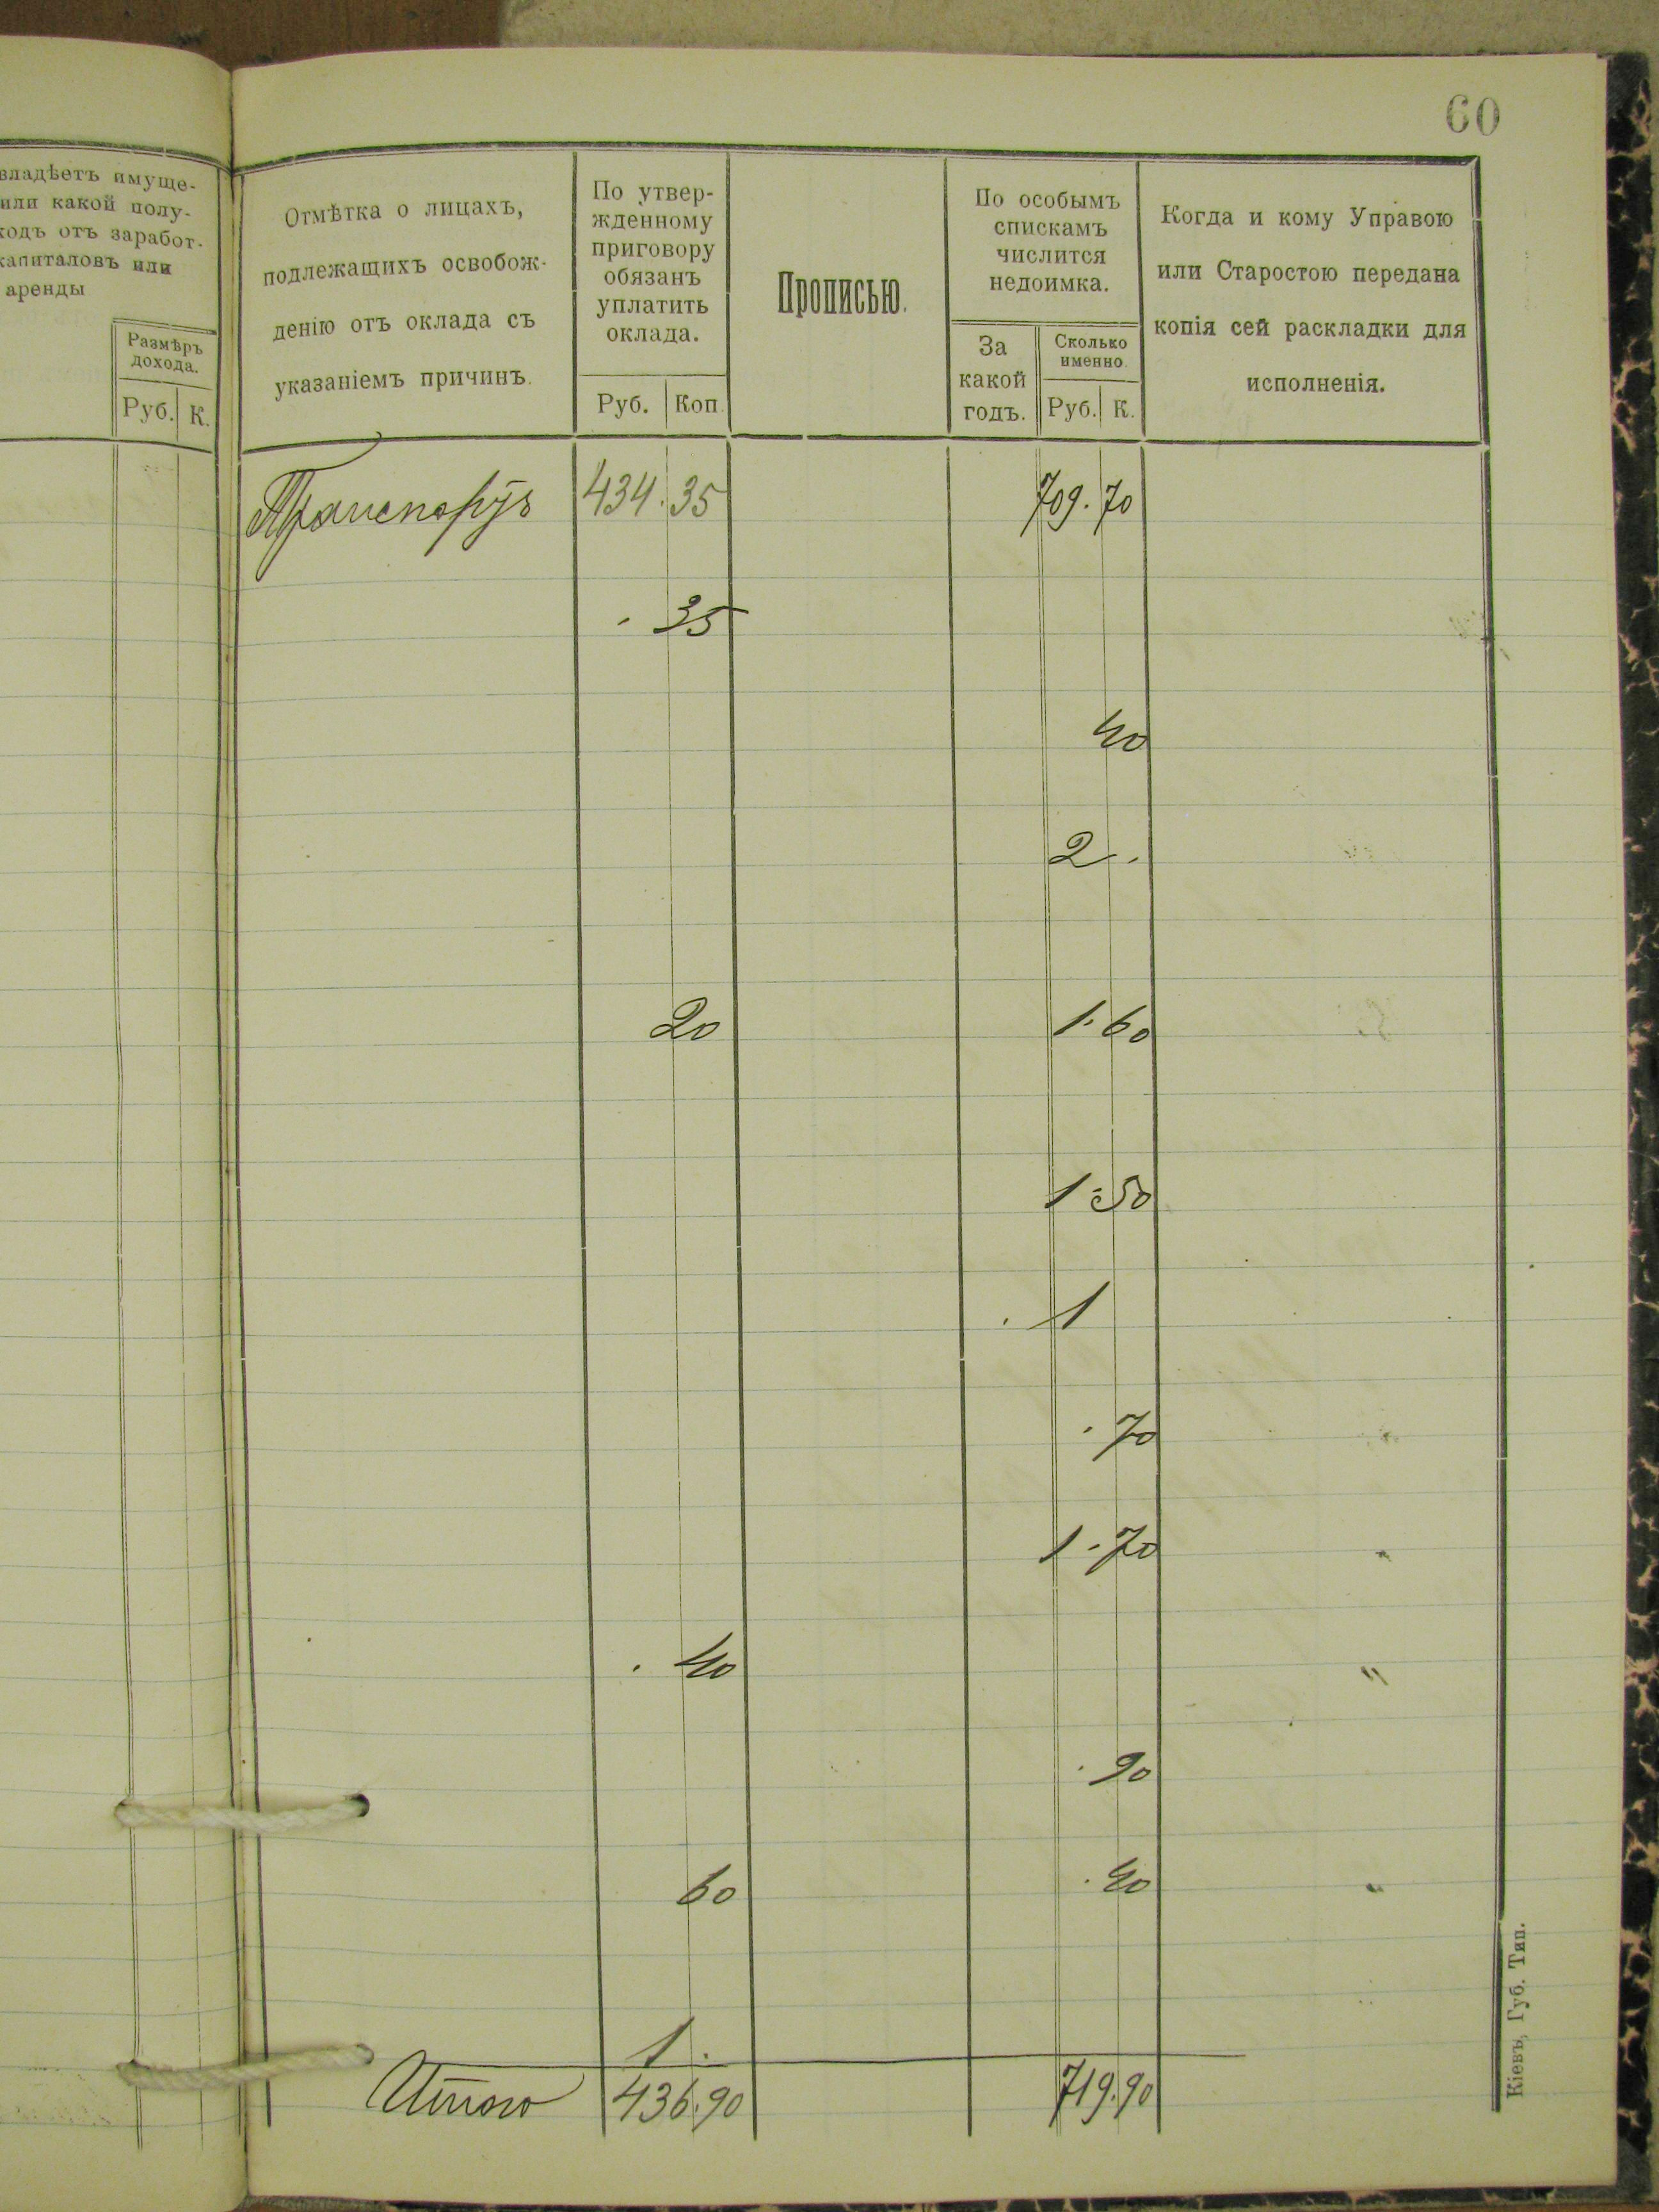 60
владѣетъ имуще-
или какой полу-
ходъ отъ заработ-
капиталовъ или
аренды
Размѣръ
дохода.
Руб. К.
Отмѣтка о лицахъ,
подлежащихъ освобож-
денію отъ оклада съ
указаніемъ причинъ.
По утвер-
жденному
приговору
обязанъ
уплатить
оклада.
Руб. Коп.
Прописью.
По особымъ
спискамъ
числится
недоимка.
За
какой
годъ.
Сколько
именно.
Руб. К.
Когда и кому Управою
или Старостою передана
копія сей раскладки для
исполненія.
Транспортъ 434.35 709.70
35
40
2
20 1.60
1-50
1
70
1-70
40
90
60 40
1
Итого 436.90 719.90
Кіевъ, Губ. Тип.